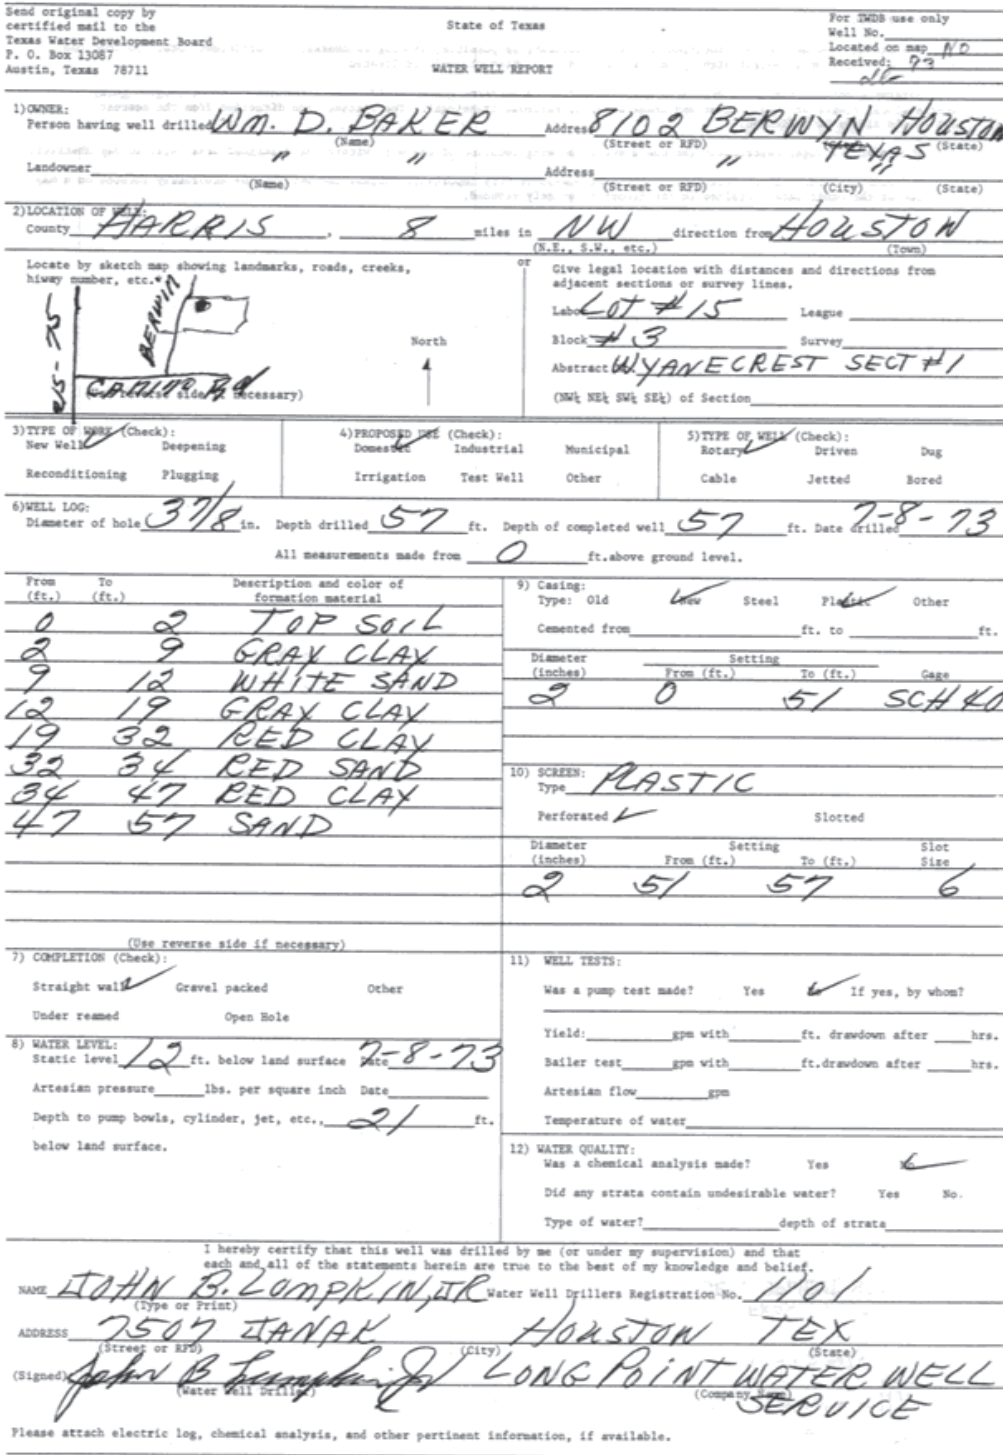 Send original copy by
certified mail to the
Texas Water Development Board
P. O. Box 13087
Austin, Texas 78711
State of Texas
WATER WELL REPORT
For TWDB use only
Well No.
Located on map NO
Received: 73
1) OWNER:
Person having well drilled Wm. D. BAKER Address 8102 BERWYN HOUSTON TEXAS
(Name) (Street or RFD) (State)
Landowner " " Address " "
(Name) (Street or RFD) (City) (State)
2) LOCATION OF WELL:
County HARRIS, 8 miles in NW direction from HOUSTON
(N.E., S.W., etc.) (Town)
Locate by sketch map showing landmarks, roads, creeks,
hiway number, etc.*
BERWIN
North
(Use reverse side if necessary)
or
Give legal location with distances and directions from
adjacent sections or survey lines.
Labor LOT #15 League
Block #3 Survey
Abstract WYANECREST SECT #1
(NW¼ NE¼ SW¼ SE¼) of Section
3) TYPE OF WORK (Check):
New Well ✓ Deepening
Reconditioning Plugging
4) PROPOSED USE (Check):
Domestic ✓ Industrial Municipal
Irrigation Test Well Other
5) TYPE OF WELL (Check):
Rotary ✓ Driven Dug
Cable Jetted Bored
6) WELL LOG:
Diameter of hole 3 7/8 in. Depth drilled 57 ft. Depth of completed well 57 ft. Date drilled 7-8-73
All measurements made from 0 ft. above ground level.
From (ft.) To (ft.) Description and color of formation material
0 2 TOP SOIL
2 9 GRAY CLAY
9 12 WHITE SAND
12 19 GRAY CLAY
19 32 RED CLAY
32 34 RED SAND
34 47 RED CLAY
47 57 SAND
(Use reverse side if necessary)
9) Casing:
Type: Old New ✓ Steel Plastic ✓ Other
Cemented from ft. to ft.
Diameter (inches) Setting From (ft.) To (ft.) Gage
2 0 51 SCH 40
10) SCREEN:
Type PLASTIC
Perforated ✓ Slotted
Diameter (inches) Setting From (ft.) To (ft.) Slot Size
2 51 57 6
7) COMPLETION (Check):
Straight wall ✓ Gravel packed Other
Under reamed Open Hole
8) WATER LEVEL:
Static level 12 ft. below land surface Date 7-8-73
Artesian pressure lbs. per square inch Date
Depth to pump bowls, cylinder, jet, etc., 21 ft.
below land surface.
11) WELL TESTS:
Was a pump test made? Yes No ✓ If yes, by whom?
Yield: gpm with ft. drawdown after hrs.
Bailer test gpm with ft. drawdown after hrs.
Artesian flow gpm
Temperature of water
12) WATER QUALITY:
Was a chemical analysis made? Yes No ✓
Did any strata contain undesirable water? Yes No.
Type of water? depth of strata
I hereby certify that this well was drilled by me (or under my supervision) and that
each and all of the statements herein are true to the best of my knowledge and belief.
NAME JOHN B. LUMPKIN, JR Water Well Drillers Registration No. 1101
(Type or Print)
ADDRESS 7507 JANAK HOUSTON TEX
(Street or RFD) (City) (State)
(Signed) John B Lumpkin Jr LONG POINT WATER WELL SERVICE
(Water Well Driller) (Company Name)
Please attach electric log, chemical analysis, and other pertinent information, if available.